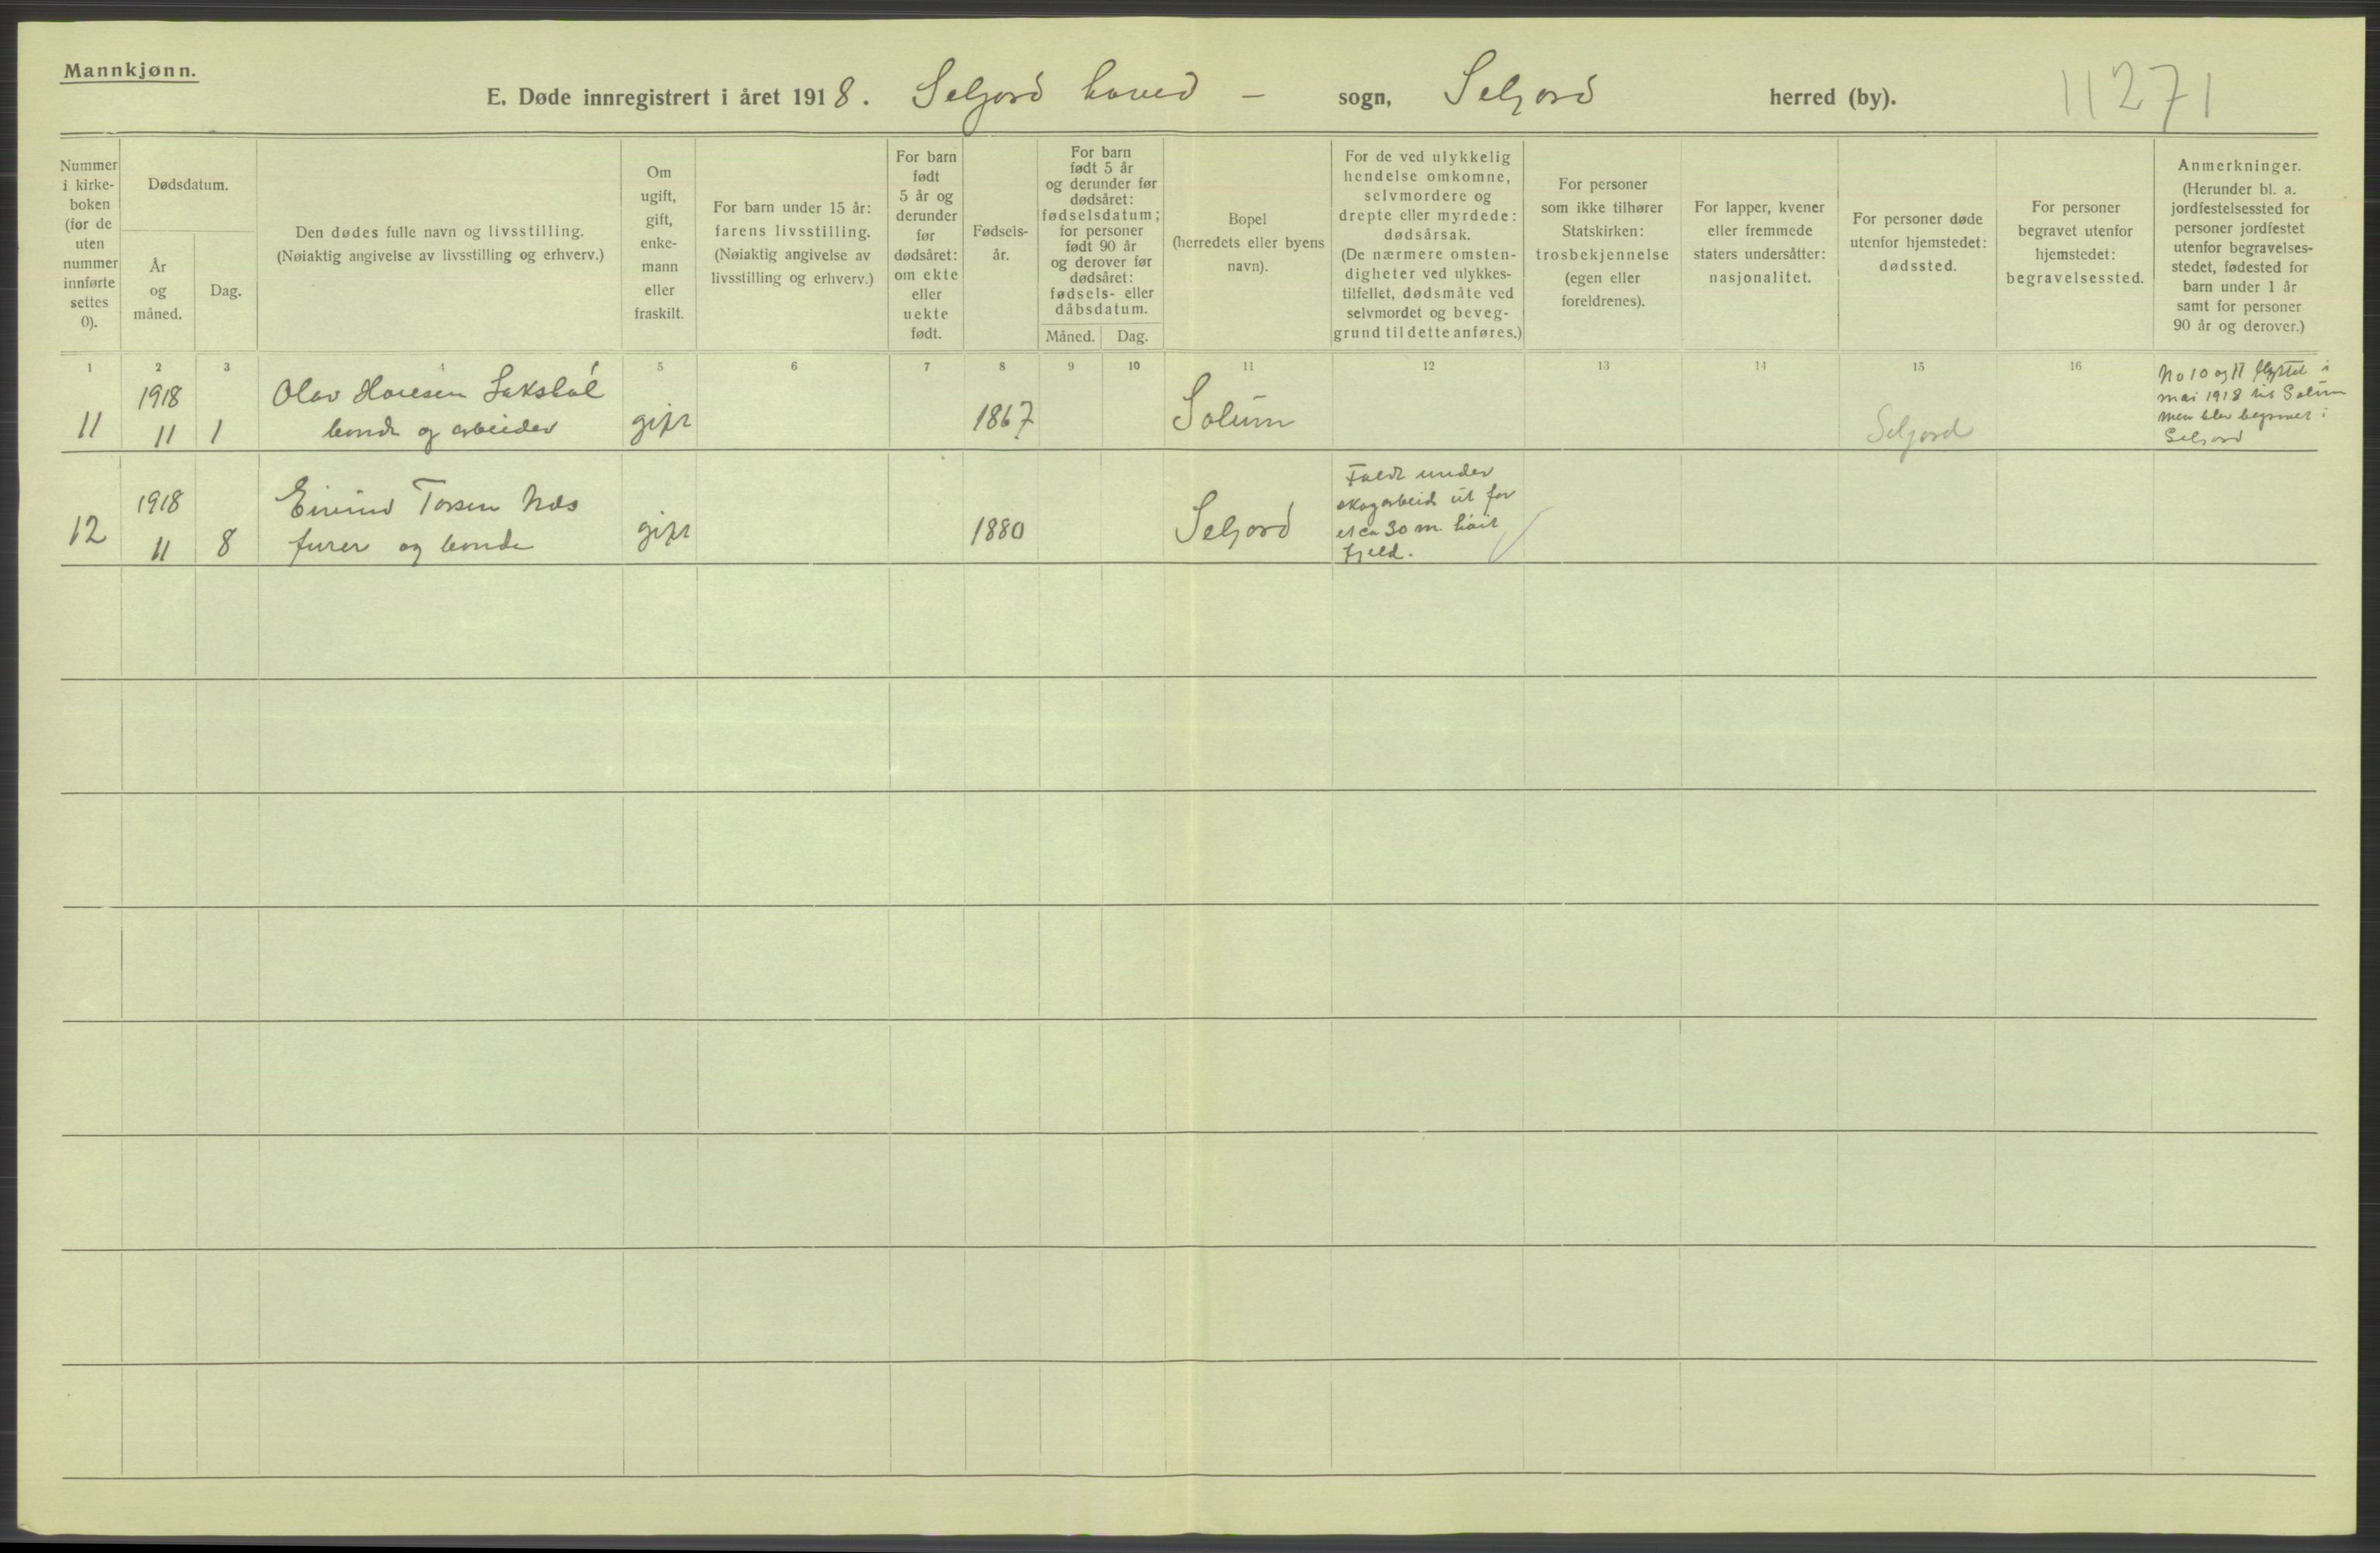 Mannkjønn.
E. Døde innregistrert i året 1918. Seljord hoved - sogn, Seljord herred (by).
11271
Nummer
i kirke-
boken
(for de
uten
nummer
innførte
settes
0).
Dødsdatum.
År
og
måned.
Dag.
Den dødes fulle navn og livsstilling.
(Nøiaktig angivelse av livsstilling og erhverv.)
Om
ugift,
gift,
enke-
mann
eller
fraskilt.
For barn under 15 år:
farens livsstilling.
(Nøiaktig angivelse av
livsstilling og erhverv.)
For barn
født
5 år og
derunder
før
dødsåret:
om ekte
eller
uekte
født.
Fødsels-
år.
For barn
født 5 år
og derunder før
dødsåret:
fødselsdatum;
for personer
født 90 år
og derover før
dødsåret:
fødsels- eller
dåbsdatum.
Måned.
Dag.
Bopel
(herredets eller byens
navn).
For de ved ulykkelig
hendelse omkomne,
selvmordere og
drepte eller myrdede:
dødsårsak.
(De nærmere omsten-
digheter ved ulykkes-
tilfellet, dødsmåte ved
selvmordet og beveg-
grund til dette anføres.)
For personer
som ikke tilhører
Statskirken:
trosbekjennelse
(egen eller
foreldrenes).
For lapper, kvener
eller fremmede
staters undersåtter:
nasjonalitet.
For personer døde
utenfor hjemstedet:
dødssted.
For personer
begravet utenfor
hjemstedet:
begravelsessted.
Anmerkninger.
(Herunder bl. a.
jordfestelsessted for
personer jordfestet
utenfor begravelses-
stedet, fødested for
barn under 1 år
samt for personer
90 år og derover.)
1 2 3 4 5 6 7 8 9 10 11 12 13 14 15 16
11
1918
11
1
Olav
bonde og arbeider
gift
1867
Solum
Seljord
No 10 og 11 flyttet i
mai 1918 til Solum
men blev begravet i
Seljord
12
1918
11
8
Eivind Torsen Næs
furer og bonde
gift
1880
Seljord
Faldt under
skogarbeid ut for
et ca 30 m. høit
fjeld.